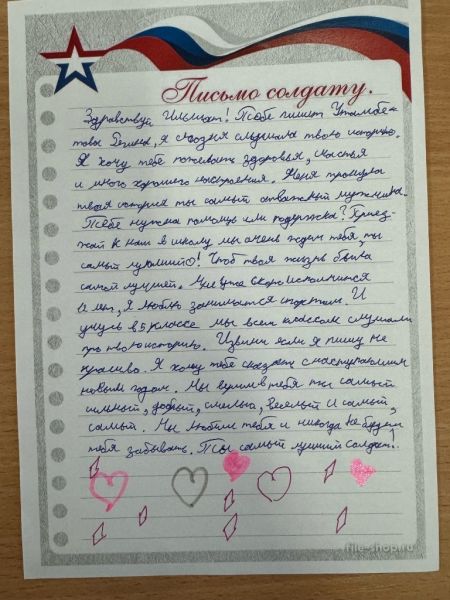 Письмо солдату.
Здравствуй Ильшат! Тебе пишет
я сегодня слушала твою историю.
Я хочу тебе пожелать здоровья, счастья
и много хорошего настроения. Меня тронула
твоя история ты самый отважный мужчина.
Тебе нужна помощь или подержка? Приез-
жай к нам в школу мы очень ждем тебя, ты
самый лучший! Чтоб твоя жизнь была
самой лучшей. Мне уже скоро исполнится
лет, я люблю заниматся спортом. И
учусь в 5 классе мы всем классом слушали
про твою историю. Извини если я пишу не
красиво. Я хочу тебе сказать с наступающим
новым годом. Мы верим в тебя ты самый
сильный, добрый, смелый, веселый и самый,
самый. Мы любим тебя и никогда не будем
тебя забывать. Ты самый лучший солдат!
file-shop.ru